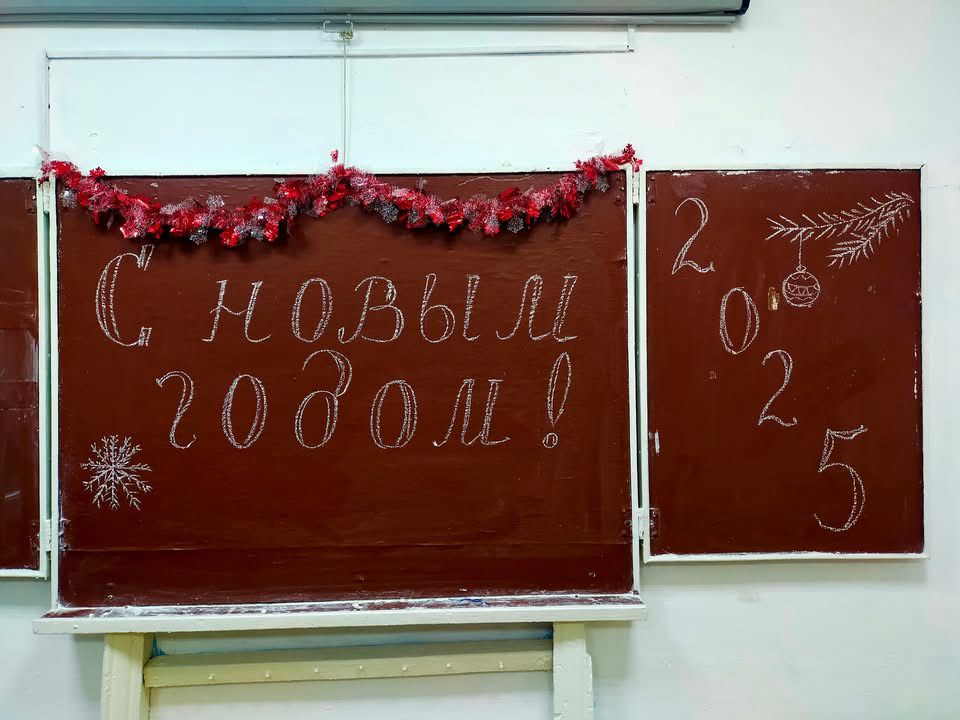 С новым
годом!
2025